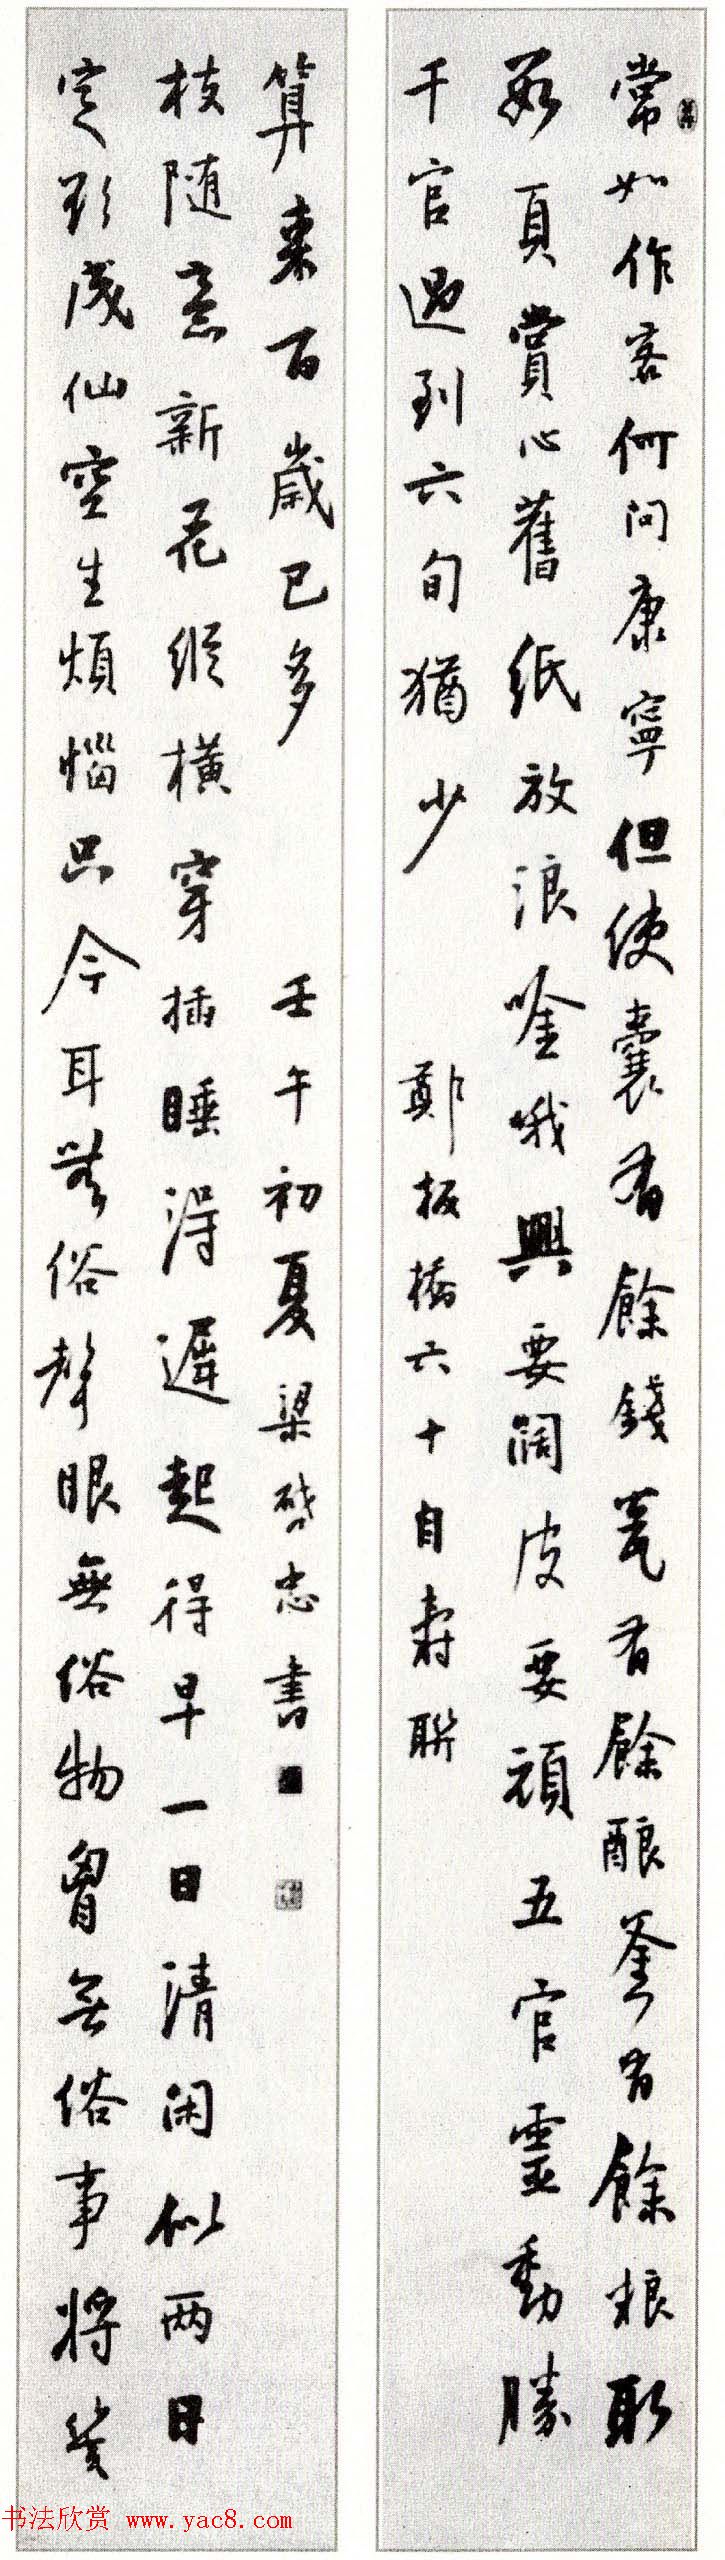 常如作客何问康寧但使囊有餘錢瓮有餘酿釜有餘粮取
数頁賞心舊紙放浪唫哦興要阔皮要頑五官靈動勝
千官過到六旬猶少
鄭板橋六十自壽聯
定欲成仙空生煩惱只今耳無俗聲眼無俗物胷無俗事將幾
枝随意新花縱橫穿插睡得遲起得早一日清闲似两日
算来百歲已多
壬午初夏梁啓忠書
书法欣赏 www.yac8.com